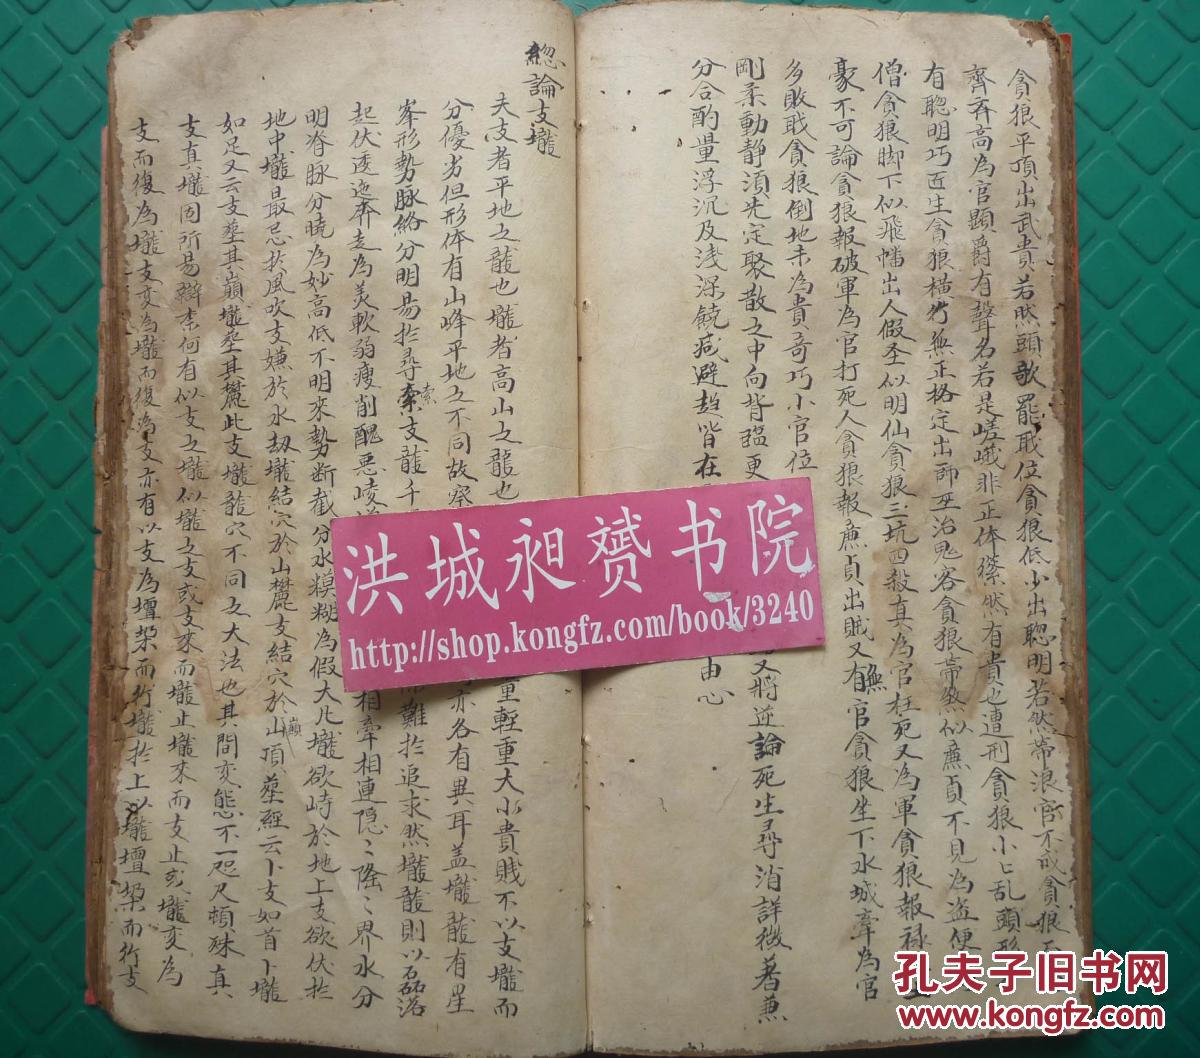 貪狼平頂出武貴若然頭歌罷取位貪狼低少出聰明若然帶浪官不成貪狼
齊齊高為官顯爵有聲名若是嵯峨非正体縱然有貴也遭刑貪狼小七乱頭
有聰明巧匠生貪狼橫行無正格定出師巫治鬼客貪狼帶煞似廉貞不見為盜便
僧貪狼脚下似飛幡出人假圣似明仙貪狼三坑四殺真為官枉死又為軍貪狼報祿
豪不可論貪狼報破軍為官打死人貪狼報廉貞出賊又有無官貪狼坐下水城牽為官
多敗戝貪狼倒地未為貴奇巧小官位
剛柔動靜須先定聚散之中向背臨更
又將逆論死生尋消詳微著兼
分合酌量浮沉及浅深饒减避趋皆在
由心
總論支壠
夫支者平地之龍也壠者高山之龍也
重輕重大小貴賤不以支壠而
分優劣但形体有山峰平地之不同故察
亦各有異耳盖壠龍有星
峯形勢脉絡分明易扵尋索支龍千
難扵追求然壠龍則以磊落
起伏逶迤奔走為美軟弱瘦削醜惡崚
相牽相連隐隐隆隆界水分
明脊脉分曉為妙高低不明來勢断截分水模糊為假大凡壠欲峙於地上支欲伏扵
地中壠最忌扵風吹支嫌於水刼壠結穴於山麓支結穴於山頂巔塟經云卜支如首卜壠
如足又云支塟其巔壠塟其麓此支壠龍穴不同之大法也其間变態不一咫尺頓殊真
支真壠固所易辯柰何有似支之壠似壠之支或支來而壠止壠來而支止或壠变為
支而復為壠支变為壠而復為支亦有以支為壇埜而行壠扵上以壠壇埜而行支
洪城昶赟书院
http://shop.kongfz.com/book/3240
孔夫子旧书网
www.kongfz.com